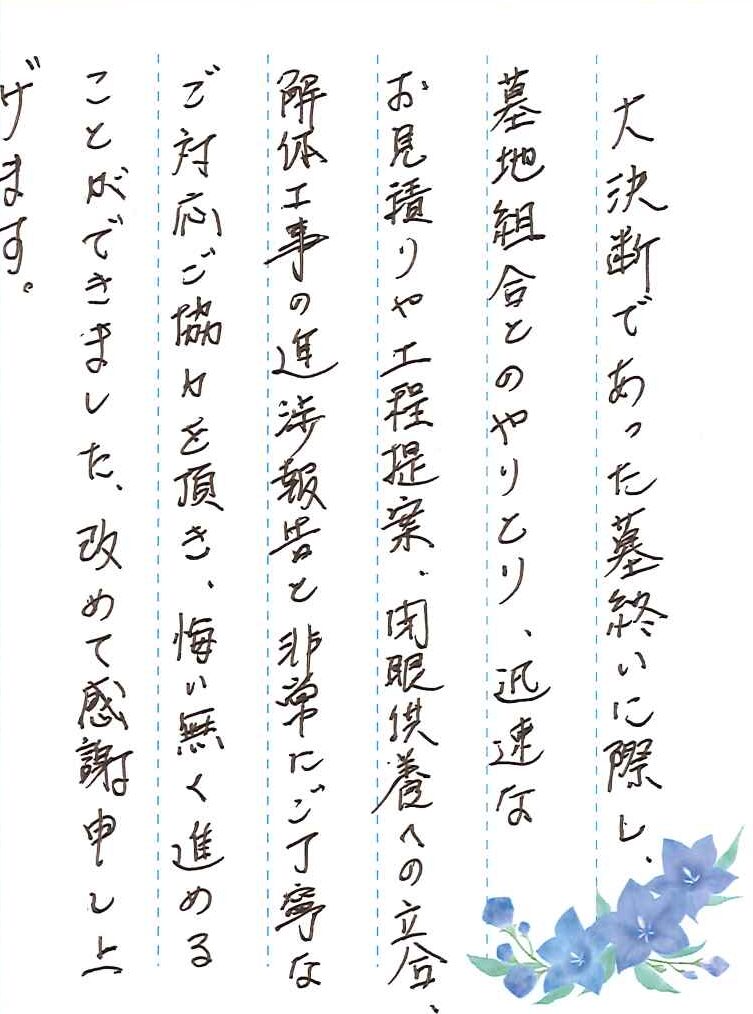 大決断であった墓終いに際し、
墓地組合とのやりとり、迅速な
お見積りや工程提案、閉眼供養への立合、
解体工事の進渉報告と非常にご丁寧な
ご対応ご協力を頂き、悔い無く進める
ことができました、改めて感謝申し上
げます。